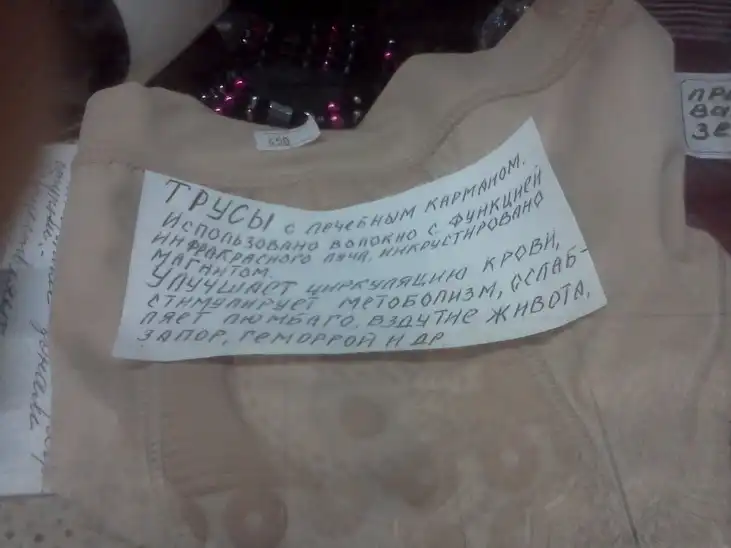 650
ТРУСЫ С ЛЕЧЕБНЫМ КАРМАНОМ.
ИСПОЛЬЗОВАНО ВОЛОКНО С ФУНКЦИЕЙ
ИНФРАКРАСНОГО ЛУЧА, ИНКРУСТИРОВАНО
МАГНИТОМ.
УЛУЧШАЕТ ЦИРКУЛЯЦИЮ КРОВИ,
СТИМУЛИРУЕТ МЕТОБОЛИЗМ, ОСЛАБ-
ЛЯЕТ ЛЮМБАГО, ВЗДУТИЕ ЖИВОТА,
ЗАПОР, ГЕМОРРОЙ И ДР
ПР
ВА
ЗЕ